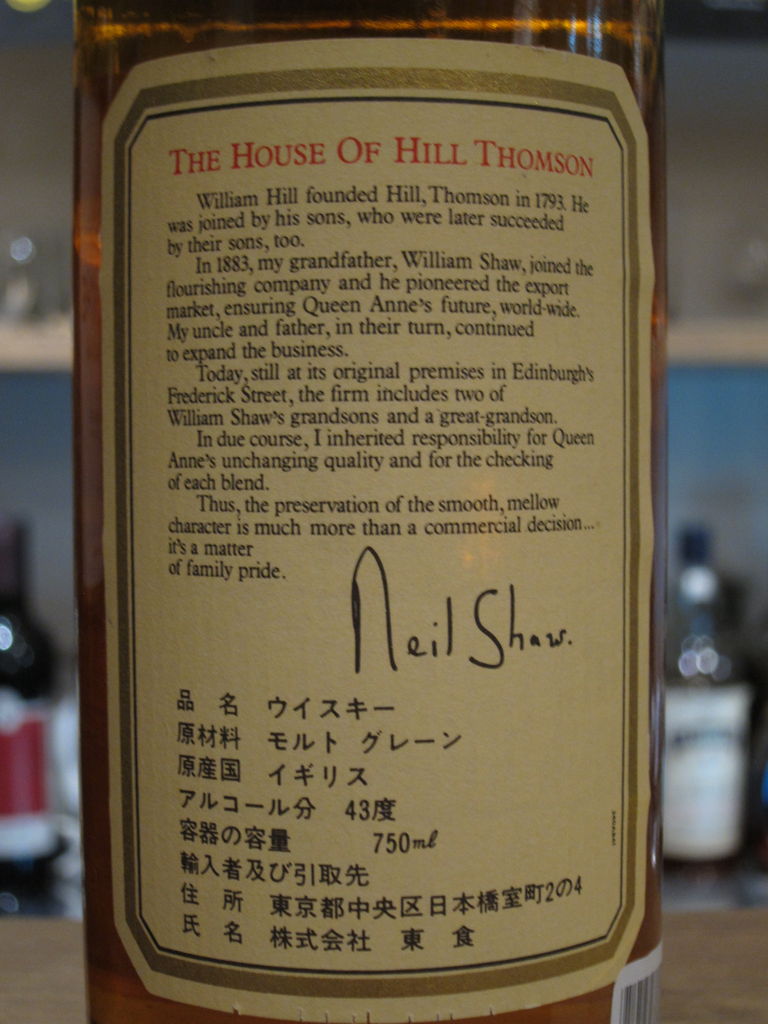 THE HOUSE OF HILL THOMSON
William Hill founded Hill, Thomson in 1793. He
was joined by his sons, who were later succeeded
by their sons, too.
In 1883, my grandfather, William Shaw, joined the
flourishing company and he pioneered the export
market, ensuring Queen Anne's future, world-wide.
My uncle and father, in their turn, continued
to expand the business.
Today, still at its original premises in Edinburgh's
Frederick Street, the firm includes two of
William Shaw's grandsons and a great-grandson.
In due course, I inherited responsibility for Queen
Anne's unchanging quality and for the checking
of each blend.
Thus, the preservation of the smooth, mellow
character is much more than a commercial decision...
it's a matter
of family pride.
Neil Shaw.
品 名 ウイスキー
原材料 モルト グレーン
原産国 イギリス
アルコール分 43度
容器の容量 750ml
輸入者及び引取先
住 所 東京都中央区日本橋室町2の4
氏 名 株式会社 東 食